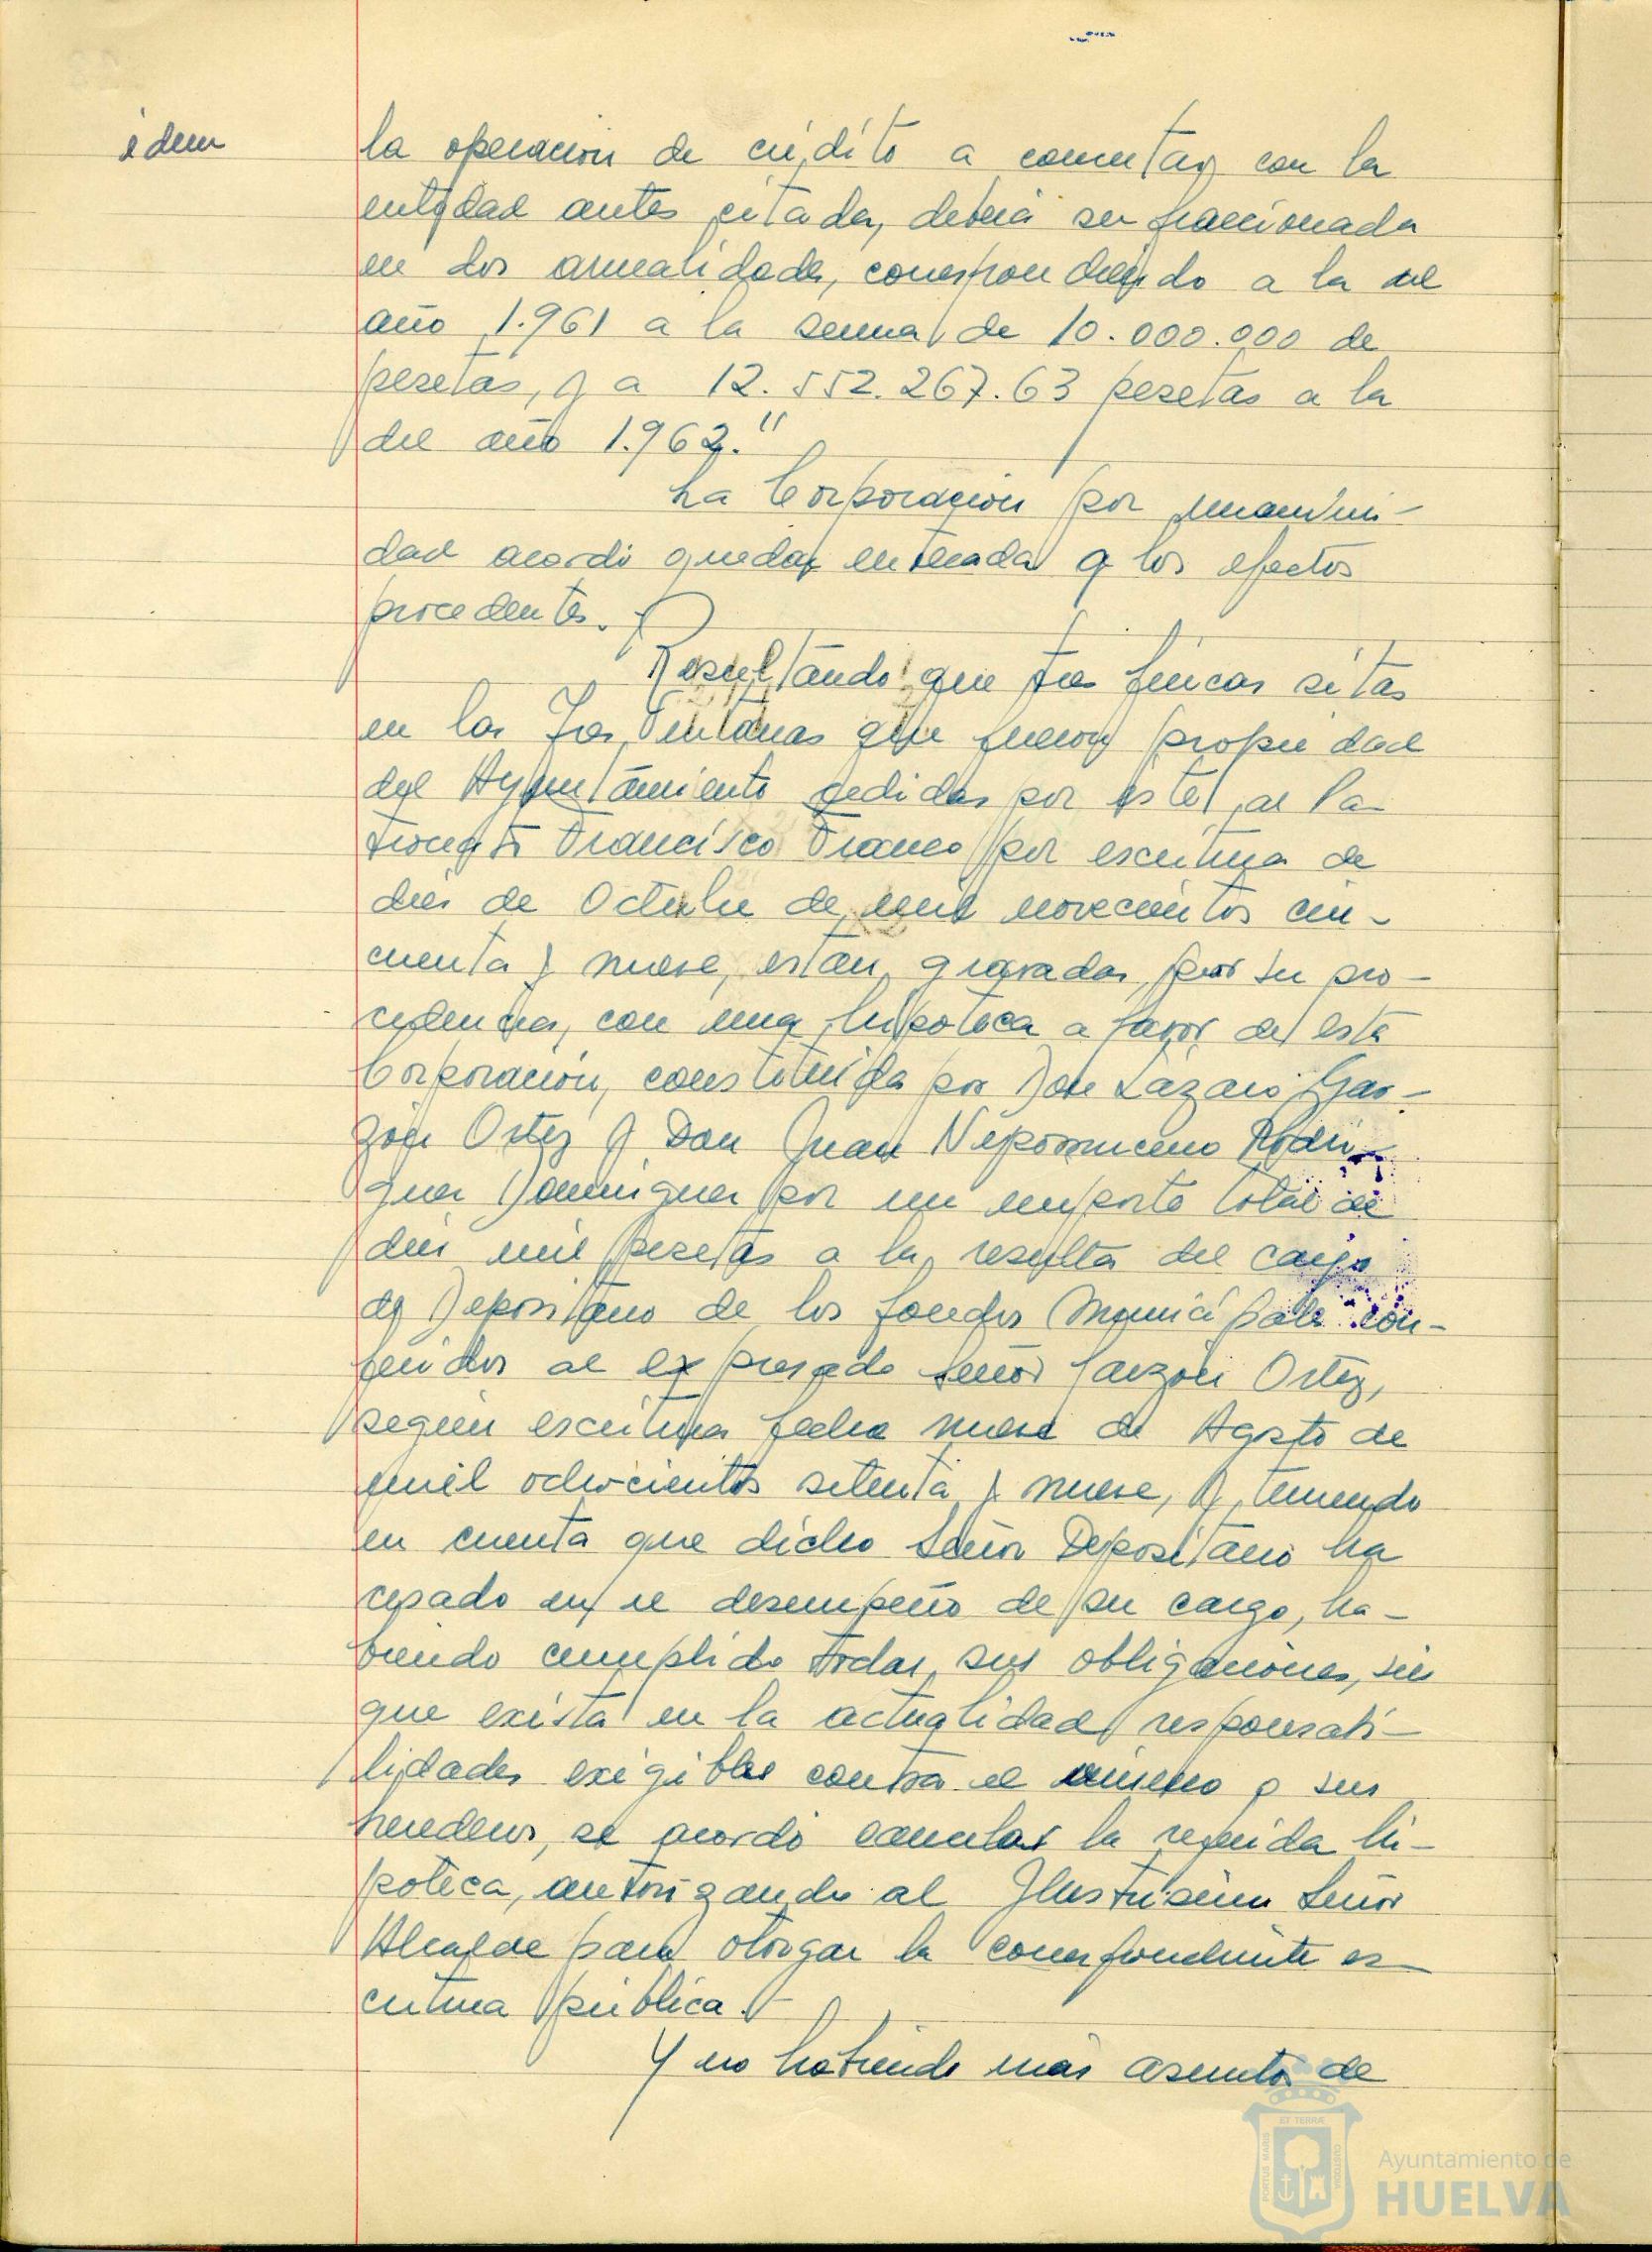 idem
la operación de crédito a concertar con la
entidad antes citada, deberá ser fraccionada
en dos anualidades, correspondiendo a la del
año 1.961 a la suma de 10.000.000 de
pesetas, y a 12.552.267.63 pesetas a la
del año 1.962."
La Corporación por unanimi-
dad acordó quedar enterada y los efectos
procedentes.
Resultando que tres fincas sitas
en las Tres Ventanas que fueron propiedad
del Ayuntamiento cedidas por éste al Pa-
tronato Francisco Franco por escritura de
diez de Octubre de mil novecientos cin-
cuenta y nueve, están gravadas, por su pro-
cedencia, con una hipoteca a favor de esta
Corporación, constituida por Don Lázaro Gar-
zón Ortiz y Don Juan Nepomuceno Rodri-
guez Dominguez por un importe total de
diez mil pesetas a la resulta del cargo
de Depositario de los fondos Municipales con-
feridos al expresado Señor Garzón Ortiz,
según escritura fecha nueve de Agosto de
mil ochocientos setenta y nueve, y teniendo
en cuenta que dicho Señor Depositario ha
cesado en el desempeño de su cargo, ha-
biendo cumplido todas sus obligaciones, sin
que exista en la actualidad responsabi-
lidades exigibles contra el mismo o sus
herederos, se acordó cancelar la referida hi-
poteca, autorizando al Ilustrísimo Señor
Alcalde para otorgar la correspondiente es-
critura pública.-
Y no habiendo más asuntos de
PORTUS MARIS
ET TERRÆ
CUSTODIA
Ayuntamiento de
HUELVA